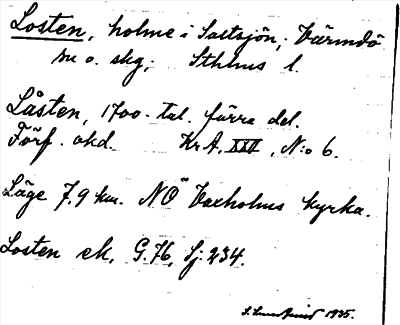 Losten, holme i Saltsjön; Värmdö
sn o. skg; Sthlms l.
Låsten, 1700-tal. förra del.
Förf. okd. Kr A, XXV, N:o 6.
Läge 7,9 km. NÖ Vaxholms kyrka.
Losten ek, G.76, Sj. 234.
1935.